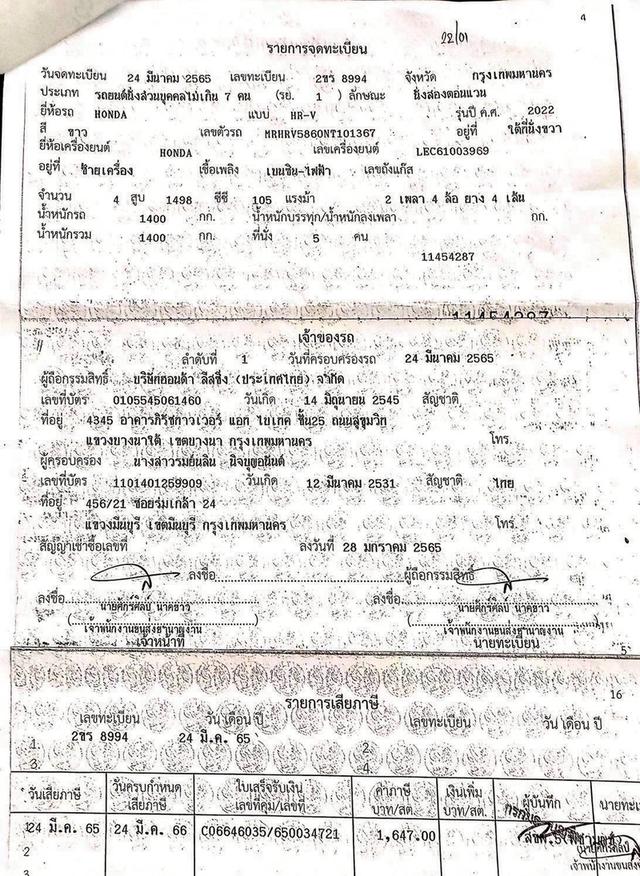 4
22/01
รายการจดทะเบียน
วันจดทะเบียน 24 มีนาคม 2565 เลขทะเบียน 2ขร 8994 จังหวัด กรุงเทพมหานคร
ประเภท รถยนต์นั่งส่วนบุคคลไม่เกิน 7 คน (รย. 1 ) ลักษณะ นั่งสองตอนแวน
ยี่ห้อรถ HONDA แบบ HR-V รุ่นปี ค.ศ. 2022
สี ขาว เลขตัวรถ MRHRV5860NT101367 อยู่ที่ ใต้ที่นั่งขวา
ยี่ห้อเครื่องยนต์ HONDA เลขเครื่องยนต์ LEC61003969
อยู่ที่ ซ้ายเครื่อง เชื้อเพลิง เบนซิน-ไฟฟ้า เลขถังแก๊ส
จำนวน 4 สูบ 1498 ซีซี 105 แรงม้า 2 เพลา 4 ล้อ ยาง 4 เส้น
น้ำหนักรถ 1400 กก. น้ำหนักบรรทุก/น้ำหนักลงเพลา กก.
น้ำหนักรวม 1400 กก. ที่นั่ง 5 คน
11454287
11454287
เจ้าของรถ
ลำดับที่ 1 วันที่ครอบครองรถ 24 มีนาคม 2565
ผู้ถือกรรมสิทธิ์ บริษัทฮอนด้า ลีสซิ่ง (ประเทศไทย) จำกัด
เลขที่บัตร 0105545061460 วันเกิด 14 มิถุนายน 2545 สัญชาติ
ที่อยู่ 4345 อาคารภิรัชทาวเวอร์ แอท ไบเทค ชั้น25 ถนนสุขุมวิท
แขวงบางนาใต้ เขตบางนา กรุงเทพมหานคร โทร.
ผู้ครอบครอง นางสาวรมย์นลิน
เลขที่บัตร 1101401259909 วันเกิด 12 มีนาคม 2531 สัญชาติ ไทย
ที่อยู่ 456/21 ซอยร่มเกล้า 24
แขวงมีนบุรี เขตมีนบุรี กรุงเทพมหานคร โทร.
สัญญาเช่าซื้อเลขที่ ลงวันที่ 28 มกราคม 2565
ลงชื่อ ผู้ถือกรรมสิทธิ์
ลงชื่อ ลงชื่อ
นายศักร์ศิลป์ นาคขาว นายศักร์ศิลป์ นาคขาว
เจ้าพนักงานขนส่งชำนาญงาน เจ้าพนักงานขนส่งชำนาญงาน
เจ้าหน้าที่ นายทะเบียน
5
16
รายการเสียภาษี
เลขทะเบียน วัน เดือน ปี เลขทะเบียน วัน เดือน ปี
1. 2ขร 8994 24 มี.ค. 65 2.
3. 4.
วันเสียภาษี วันครบกำหนดเสียภาษี ใบเสร็จรับเงิน เลขที่คุม/เลขที่ ค่าภาษี บาท/สต. เงินเพิ่ม บาท/สต. ผู้บันทึก นายทะเ
1 24 มี.ค. 65 24 มี.ค. 66 C06646035/650034721 1,647.00
2
เจ้าพนักงานขนส่ง
3